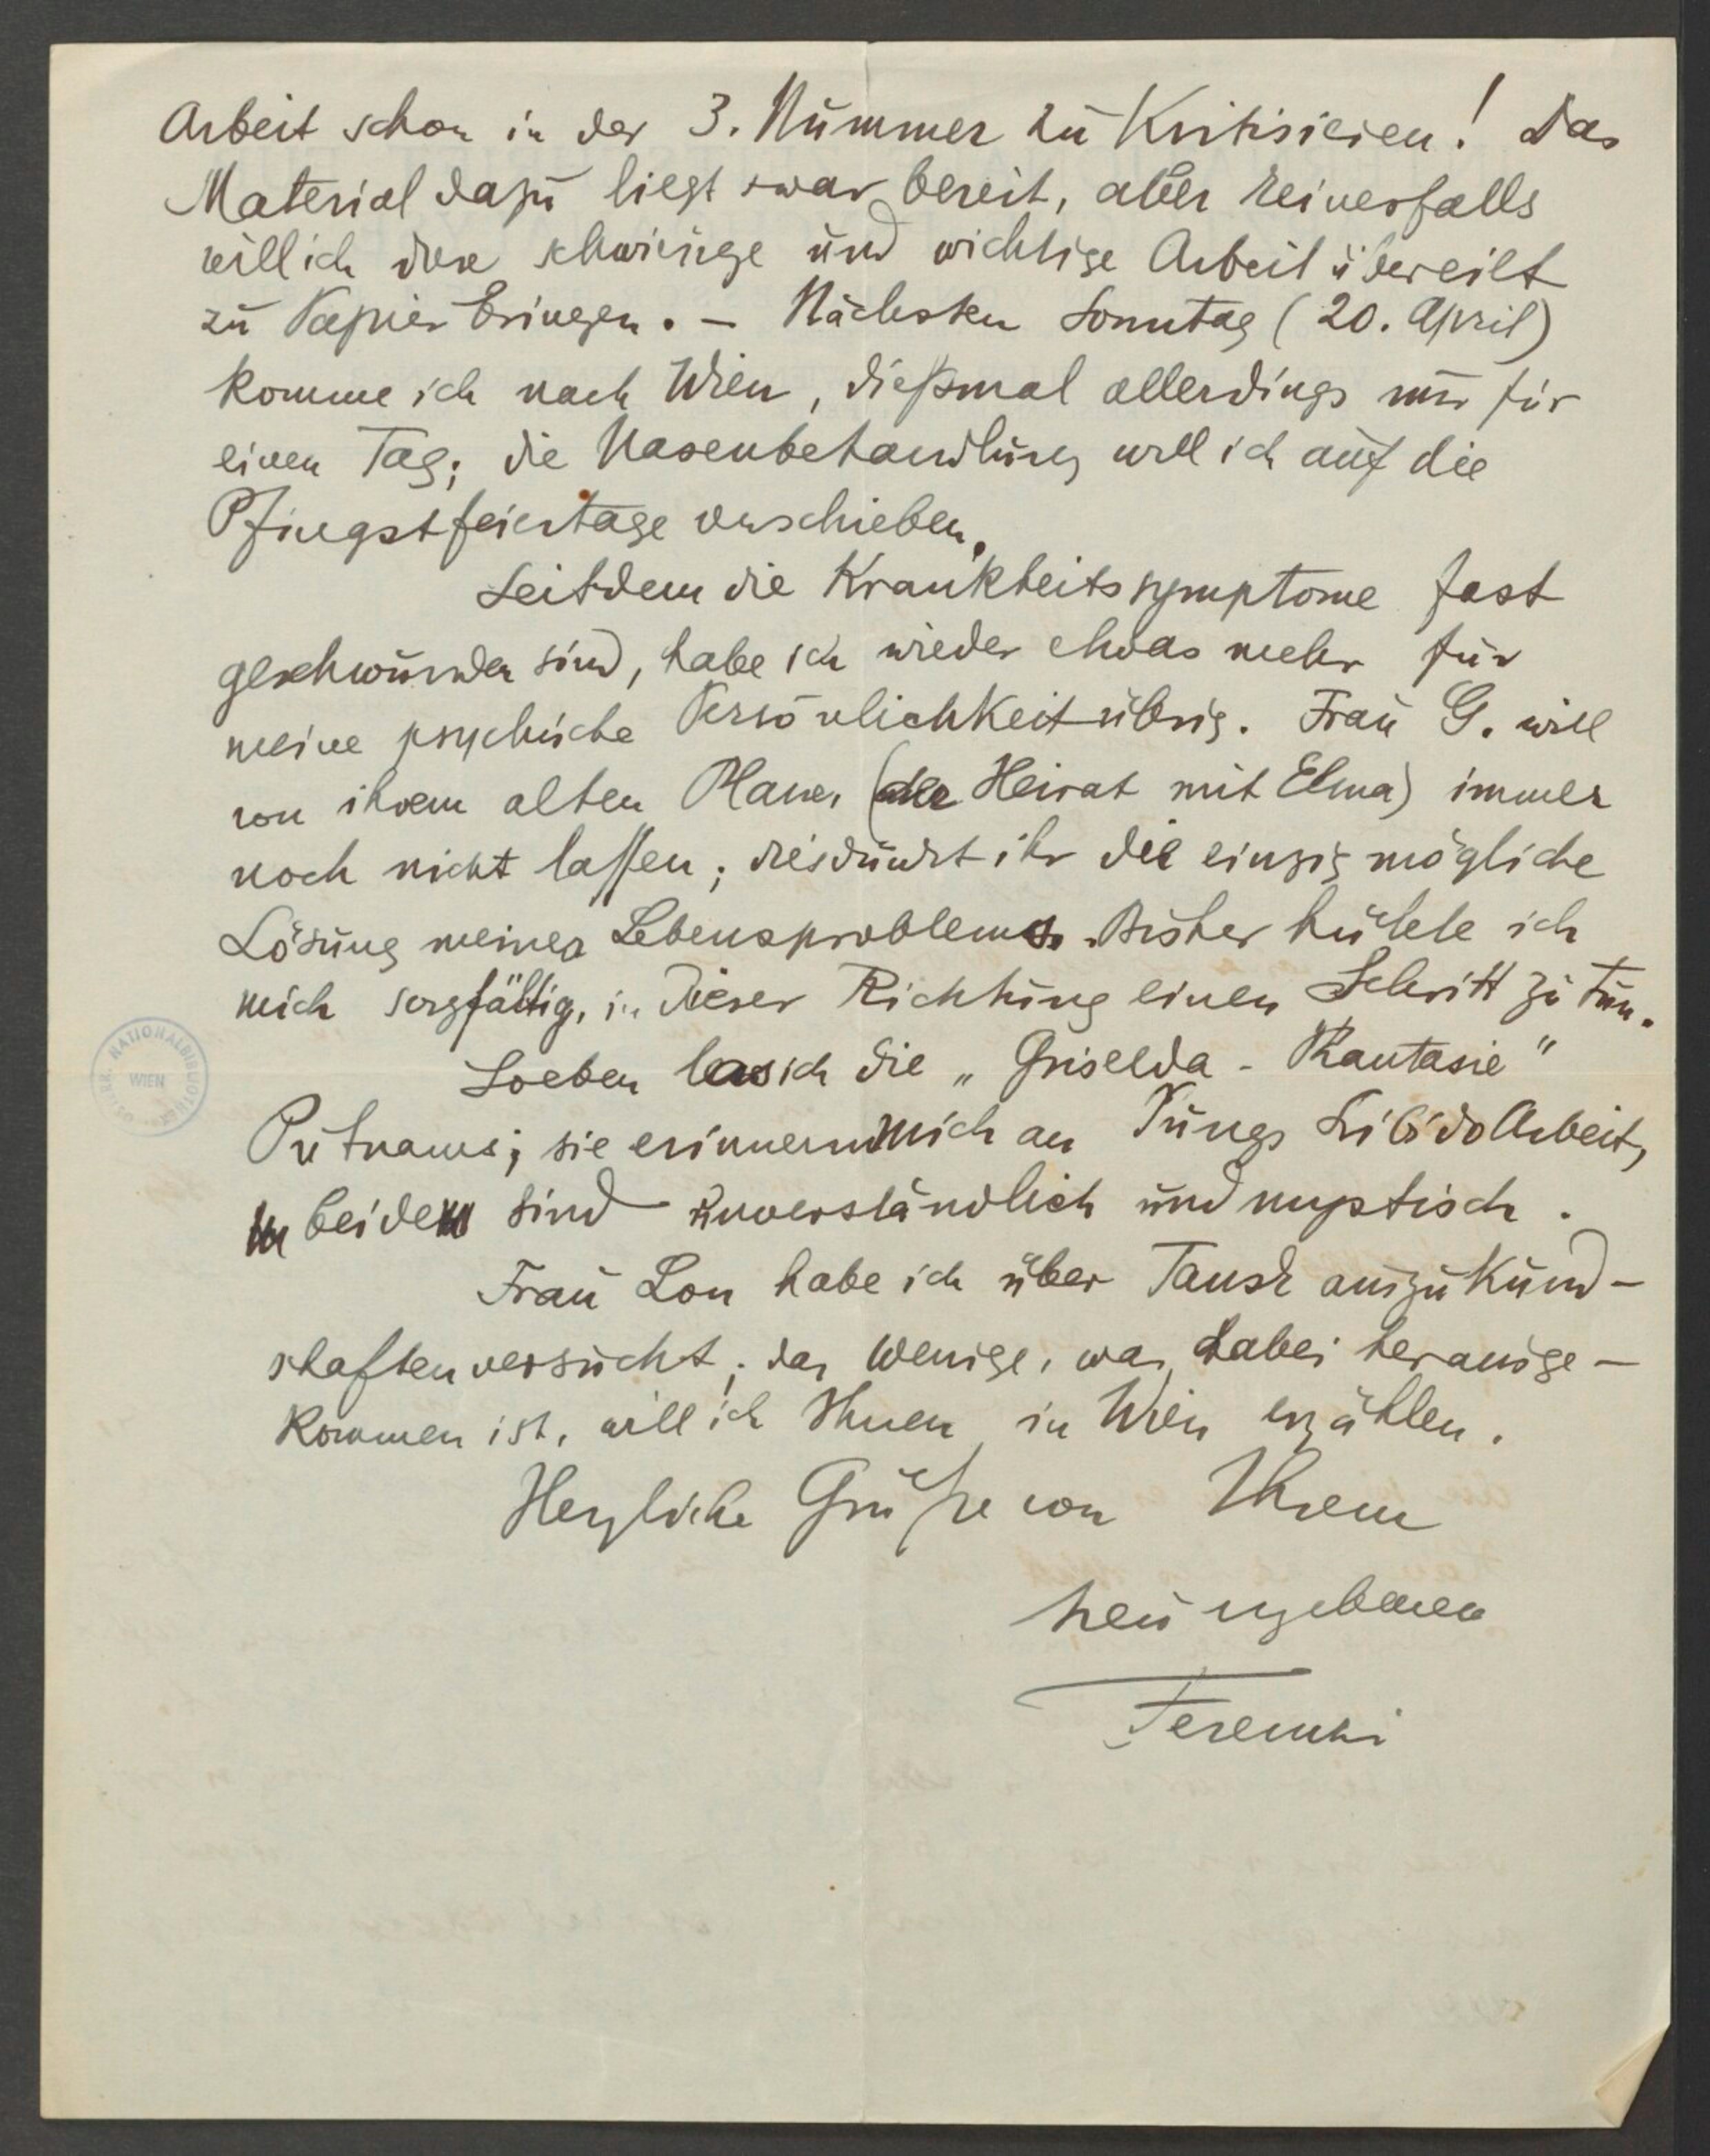 Arbeit schon in der 3. Nummer zu kritisieren! Das
Material dazu liegt zwar bereit, aber keinesfalls
will ich diese schwierige und wichtige Arbeit übereilt
zu Papier bringen. – Nächsten Sonntag (20. April)
komme ich nach Wien, dießmal allerdings nur für
einen Tag; die Nasenbehandlung will ich auf die
Pfingstfeiertage verschieben.
Seitdem die Krankheitssymptome fast
geschwunden sind, habe ich wieder etwas mehr für
meine psychische Persönlichkeit übrig. Frau G. will
von ihrem alten Plane, (der Heirat mit Elma) immer
noch nicht lassen; dies dünkt ihr die einzig mögliche
Lösung meines Lebensproblems. Bisher hütete ich
mich sorgfältig, in dieser Richtung einen Schritt zu tun.
Soeben las ich die „Griselda - Phantasie"
Putnams; sie erinnern mich an Jungs Libido Arbeit,
beide sind unverständlich und mystisch.
Frau Lou habe ich über Tausk auszukund-
schaften versucht; das Wenige, was dabei herausge-
kommen ist, will ich Ihnen in Wien erzählen.
Herzliche Grüße von Ihrem
treu ergebenen
Ferenczi
NATIONALBIBLIOTHEK
WIEN